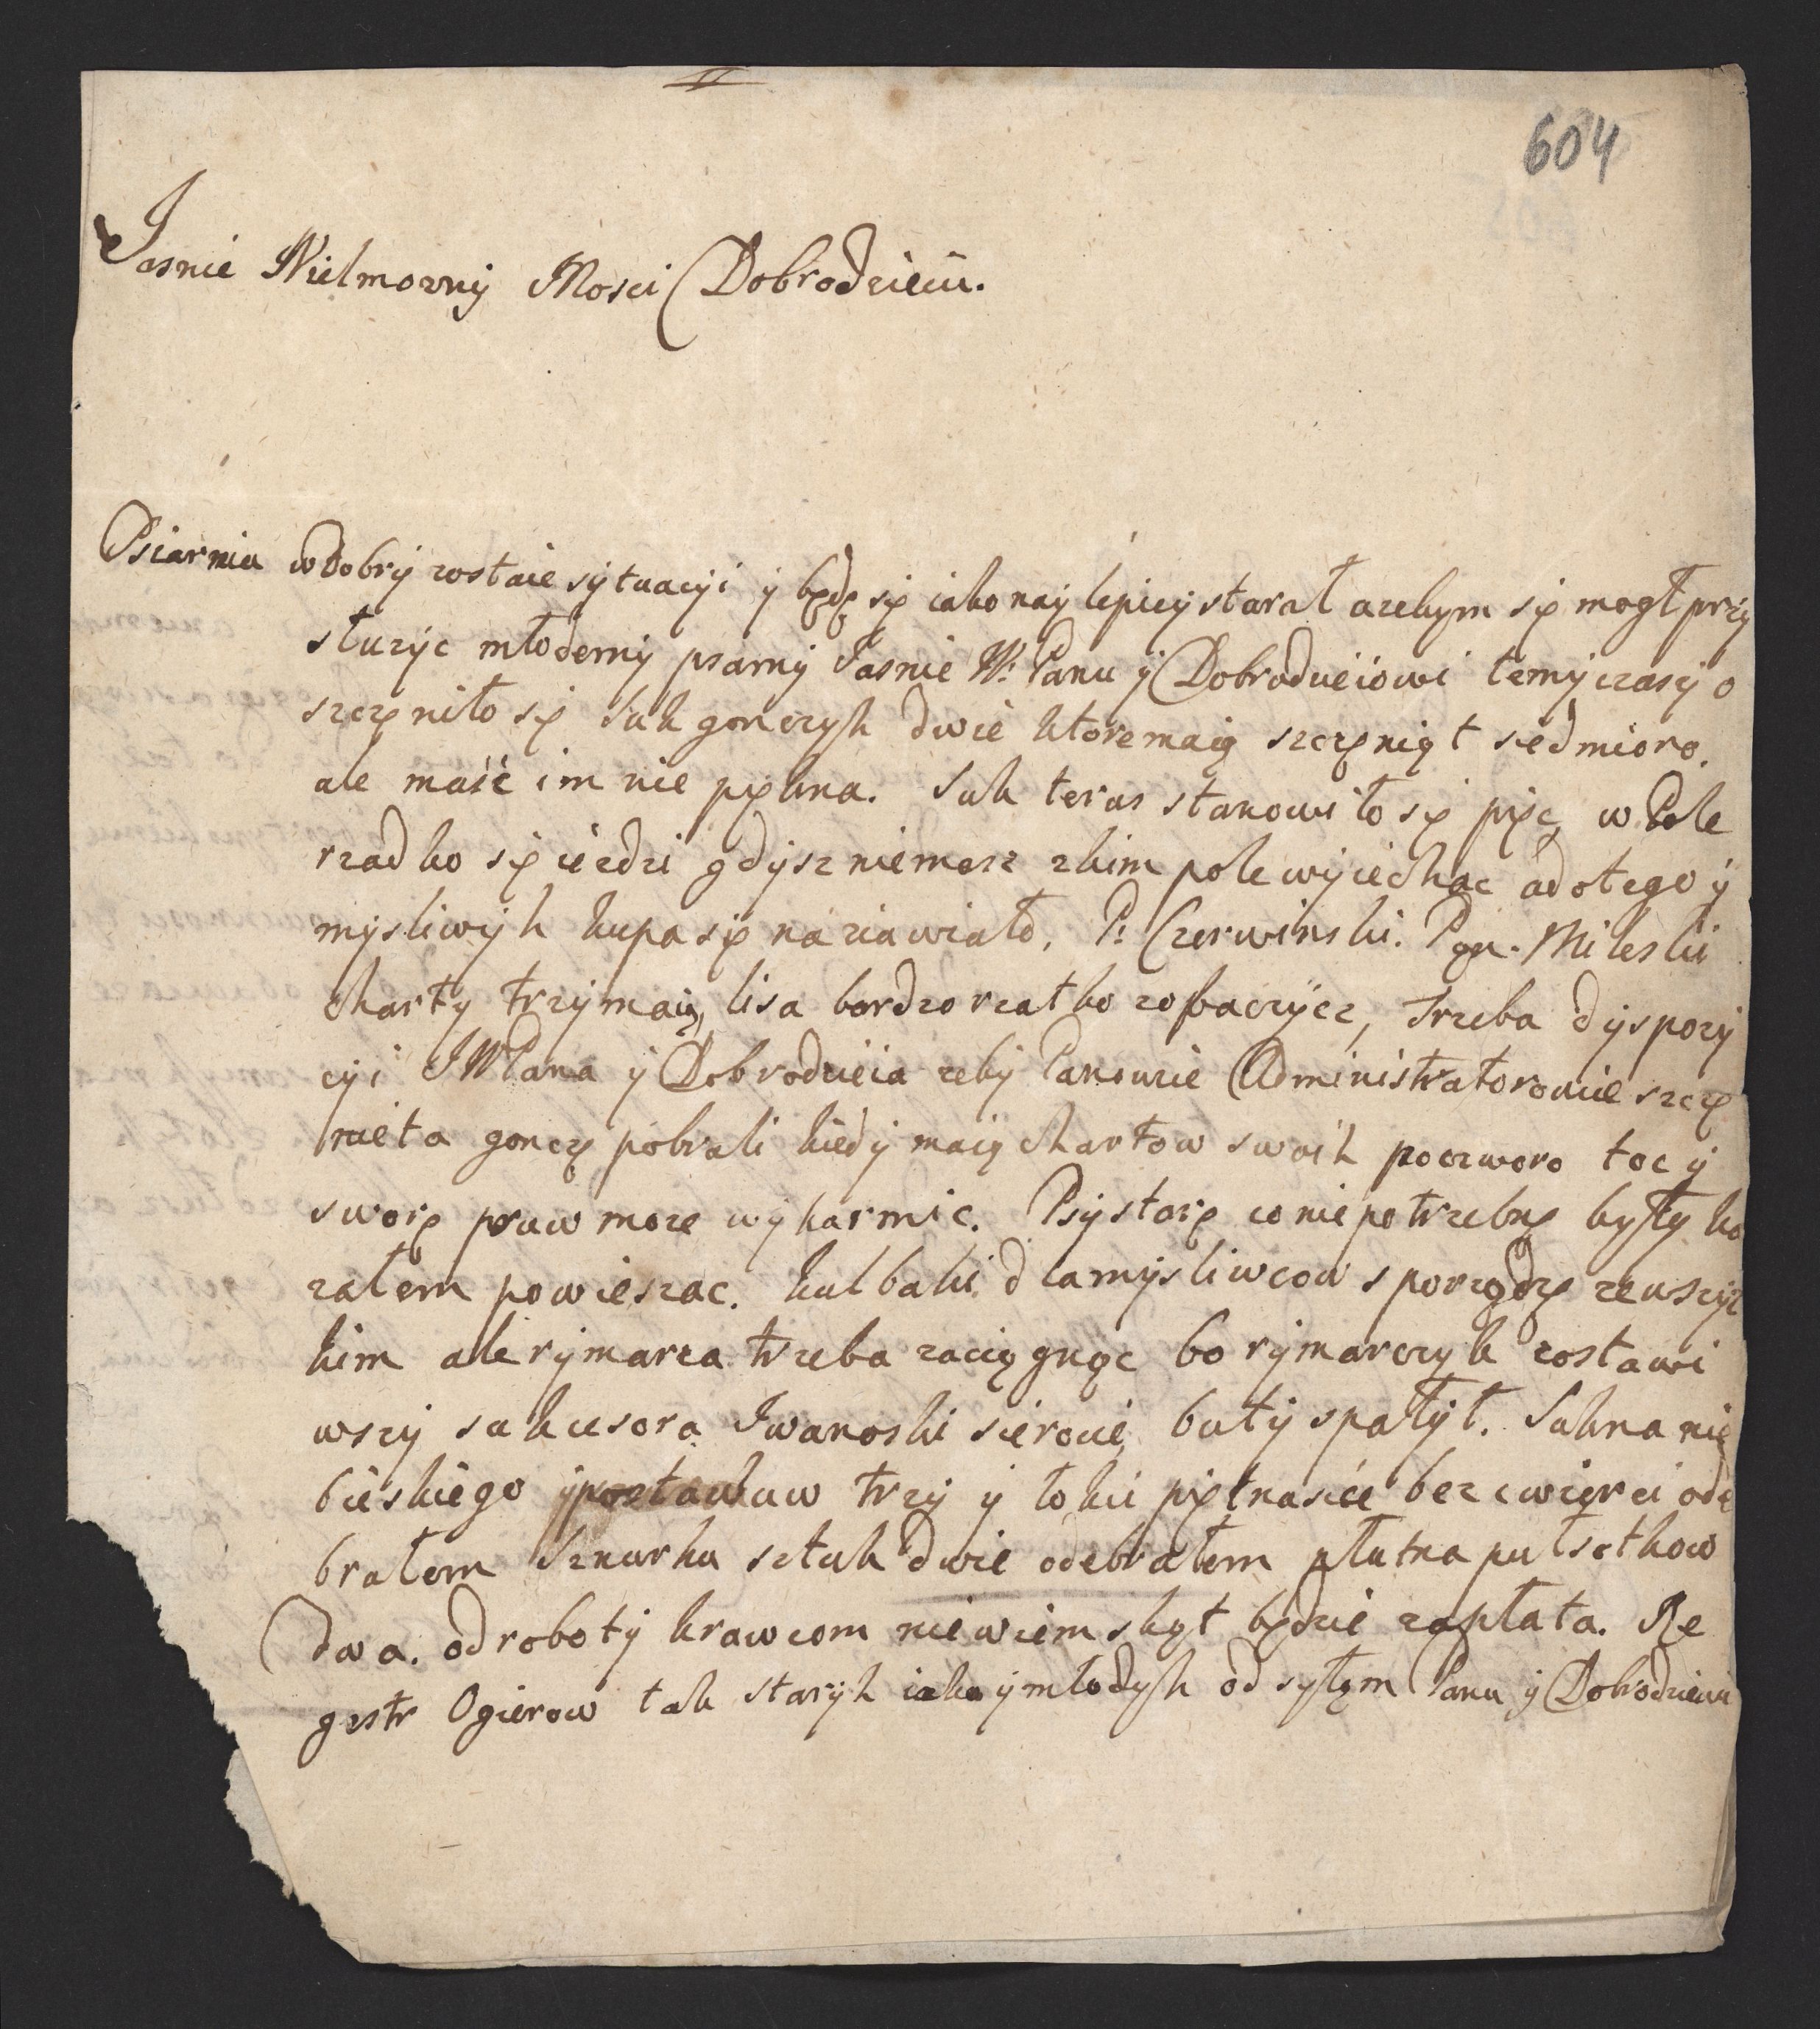 604
Jasnie Wielmozny Mosci Dobrodzieiu.
Psiarnia w dobry zostaie sytuacyi y będę się iako nay lepiey starał azebym się mogł przy
słuzyc młodemy psarny Jasnie W: Panu y Dobrodzieiowi temy czasy o
szczęniło się suk gonczyh dwie ktore maią szczęniąt siedmioro,
ale maść im nie piękna. Suk teraz stanowiło się pięc, w Pole
rzadko się iezdzi gdysz niemasz zkim pole wyiechac adotego y
mysliwyh kupa się na ziawiało, P: Czerwinski. Pan. Mileski
charty trzymaią, lisa bardzo rzatko zobaczycz, Trzeba dyspozy
cyi JW Pana y Dobrodzieia zeby Panowie Administratorowie szczę
nieta goncze pobrali kiedy maią Chartow swoih poczworo toc y
sworę psuw moze wykarmic. Psy starę co niepotrzebnę były ka
załem powieszac. kulbaki dlamysliwcow sporządzę zewszyz
kim ale rymarza trzeba zaciągnąc bo rymarczyk zostawi
wszy sukcesora Iwanoski sierocie, buty spałył. Sukna nie
bieskiego postawuw trzy y łokci piętnascie bez cwierci ode
brałem Sznurku sztuk dwie odebrałem płutna pułsetkow
dwa. od roboty krawcom niewiem skąt będzie zapłata. Re
gestr Ogierow tak staryh iako y młodyh od syłąm Panu y Dobrodzieiu